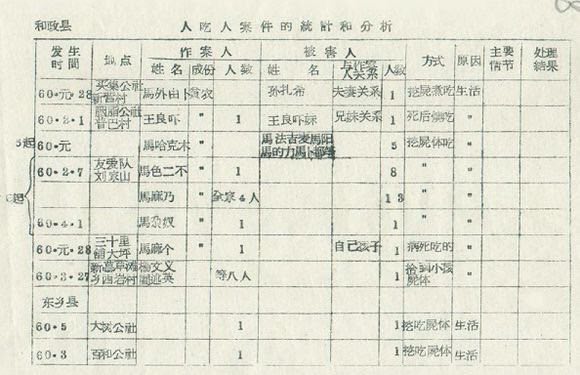 和政县 人吃人案件的統計和分析
发生时间 地点 作案人 被害人 方式 原因 主要情节 处理结果
姓名 成份 人数 姓名 与作案人关系 人数
60·元·28 买集公社 村 馬外由卜 貧农 孙扎希 夫妻关系 1 挖屍煮吃 生活
60·2·1 公社 巴村 王良吓 〃 1 王良吓妹 兄妹关系 1 死后 吃 〃
60·元 馬哈克木 〃 馬法吉麦馬阳馬的力馬卜都 5 挖屍体吃 〃
60·2·7 友爱队刘家山 馬色二不 〃 1 8 〃 〃
馬麻乃 〃 全家4人 13 〃 〃
60·4·1 奴 〃 1 1 〃 〃
60·元·28 三十里鋪大坪 馬麻个 〃 1 自己孩子 1 病死吃的 〃
60·3·27 杨文义 英 等八人 1 拾到小孩屍体 〃
东乡县
60·5 公社 1 1 挖吃屍体 生活
60·3 百和公社 1 1 挖吃屍体 生活